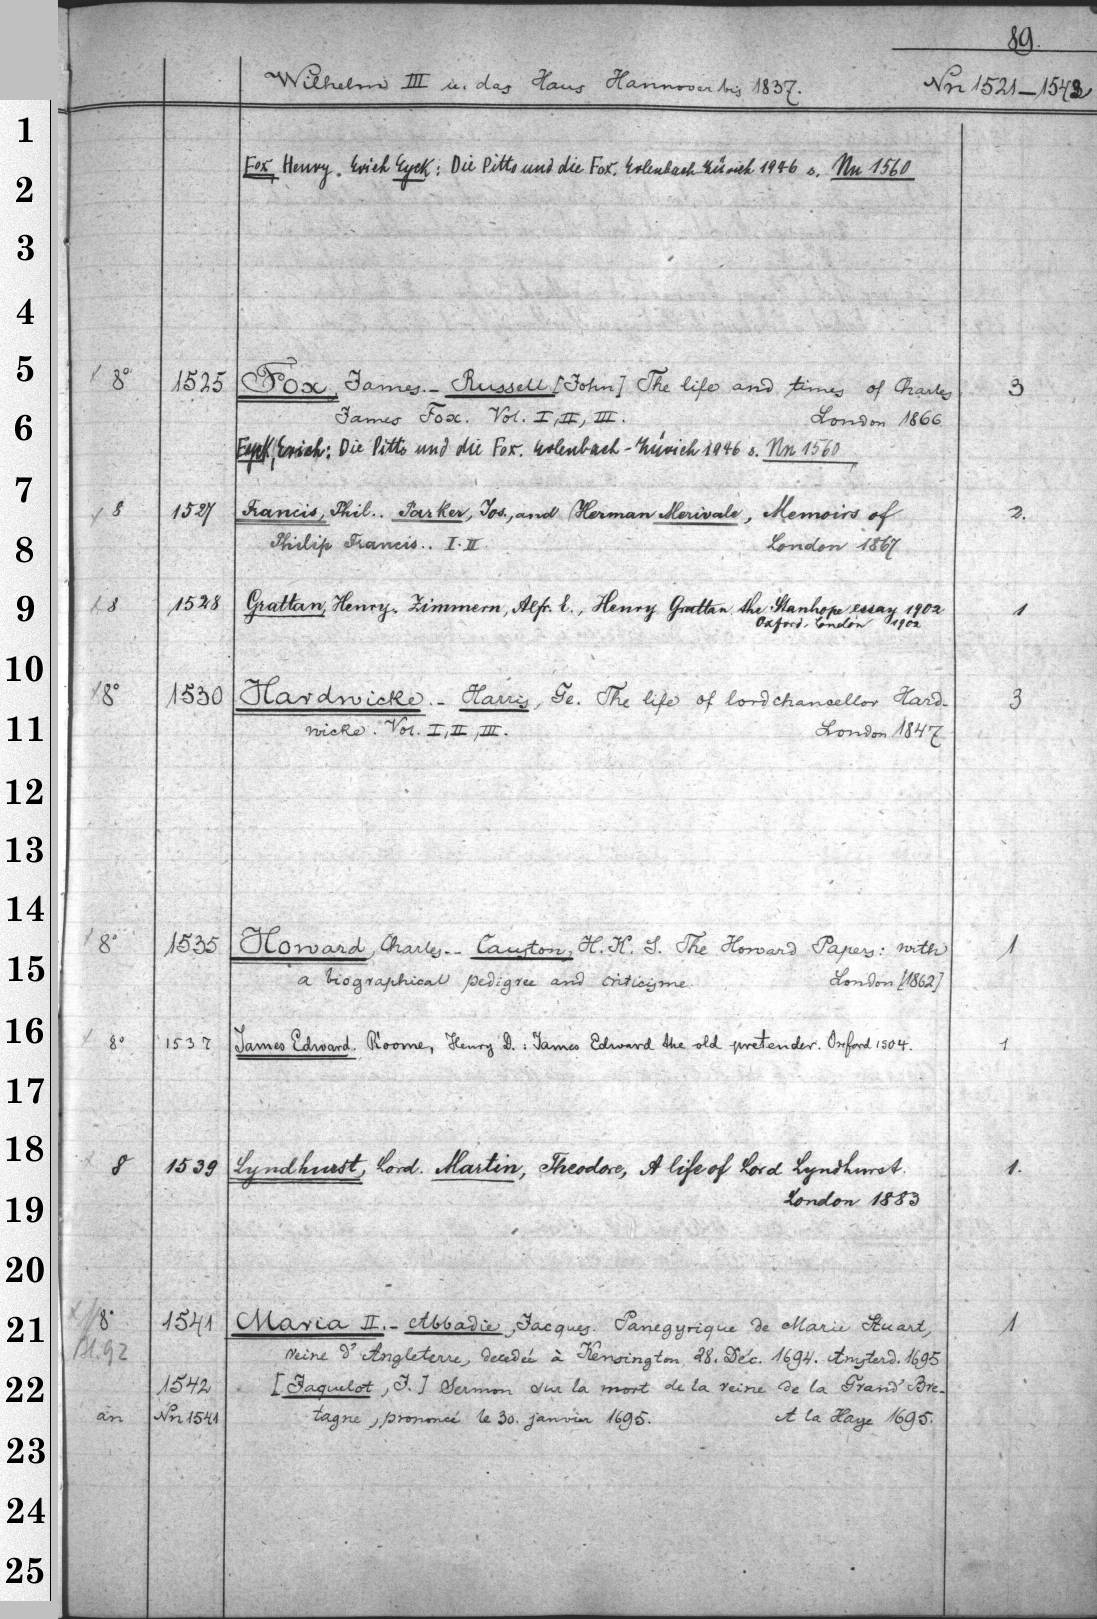 89.
Wilhelm III u. das Haus Hannover bis 1837. Nn 1521-1543
1
Fox, Henry. Erich Eyck: Die Pitts und die Fox. Erlenbach-Zürich 1946 s. Nn 1560
2
3
4
5
8° 1525 Fox, James.- Russell [John] The life and times of Charles 3
James Fox. Vol. I, II, III. London 1866
6
Eyck, Erich: Die Pitts und die Fox. Erlenbach-Zürich 1946 s. Nn 1560
7
8 1527 Francis, Phil.. Parker, Jos., and Herman Merivale, Memoirs of 2.
8
Philip Francis.. I. II London 1867
9
8 1528 Grattan, Henry. Zimmern, Alfr. E., Henry Grattan the Stanhope essay 1902 1
Oxford. London 1902
10
8° 1530 Hardwicke.- Harris, Ge. The life of lordchancellor Hard- 3
11
wicke. Vol. I, II, III. London 1847
12
13
14
8° 1535 Howard, Charles.- Causton, H. K. S. The Howard Papers: with 1
15
a biographical pedigree and criticisme. London [1862]
16
8° 1537 James Edward. Roome, Henry D.: James Edward the old pretender. Oxford 1904. 1
17
18
8 1539 Lyndhurst, Lord. Martin, Theodore, A life of Lord Lyndhurst. 1.
19
London 1883
20
21
8° 1541 Maria II.- Abbadie, Jacques. Panegyrique de Marie Stuart, 1
Bl. 92 reine d'Angleterre, decedée à Kensington, 28. Déc. 1694. Amsterd. 1695
22
1542 [Jaquelot, J.] Sermon sur la mort de la reine de la Grand' Bre-
an Nn 1541 tagne, prononcé le 30. janvier 1695. A la Haye 1695.
23
24
25